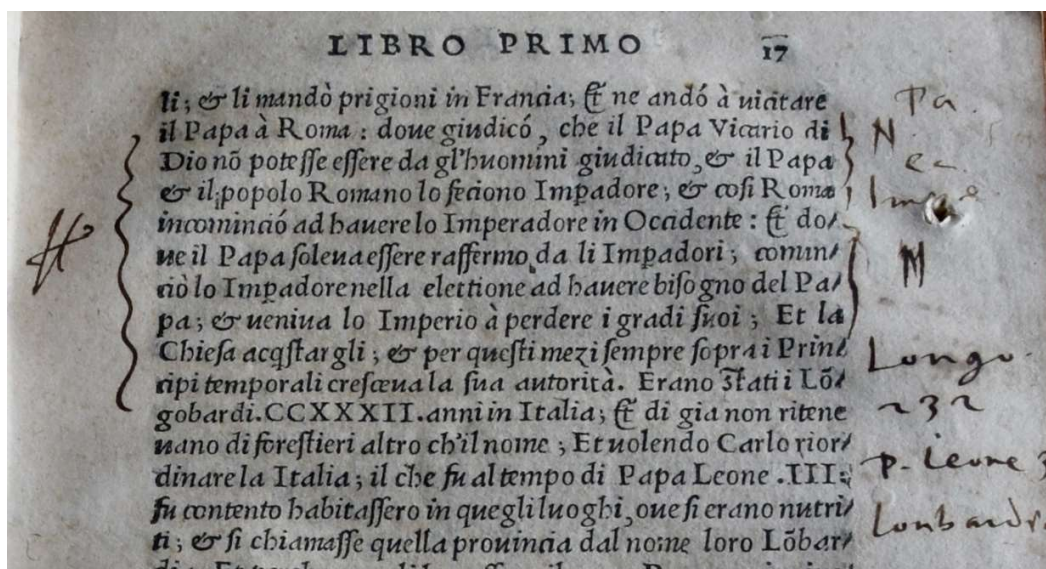 LIBRO PRIMO 17
li; & li mandò prigioni in Francia; & ne andó à uicitare
il Papa à Roma: doue giudicó, che il Papa Vicario di
Dio nõ potesse essere da gl'huomini giudicato, & il Papa
& il popolo Romano lo feciono Imp̲adore; & cosi Roma
incominció ad hauere lo Imperadore in Occidente: & do/
ue il Papa soleua essere raffermo da li Imp̲adori; comin/
ciò lo Imp̲adore nella elettione ad hauere bisogno del Pa/
pa; & ueniua lo Imperio à perdere i gradi suoi; Et la
Chiesa acq̃star gli; & per questi mezi sempre sopra i Prin/
cipi temporali cresceua la sua autorità. Erano stati i Lõ/
gobardi.CCXXXII.anni in Italia; & di gia non ritene
uano di forestieri altro ch'il nome; Et uolendo Carlo rior/
dinare la Italia; il che fu al tempo di Papa Leone .III.
fu contento habitassero in quegli luoghi, oue si erano nutri/
ti; & si chiamasse quella prouincia dal nome loro Lõbar/
Pa.
N.
M
Longo.
232
P. Leone 3
Lonbard